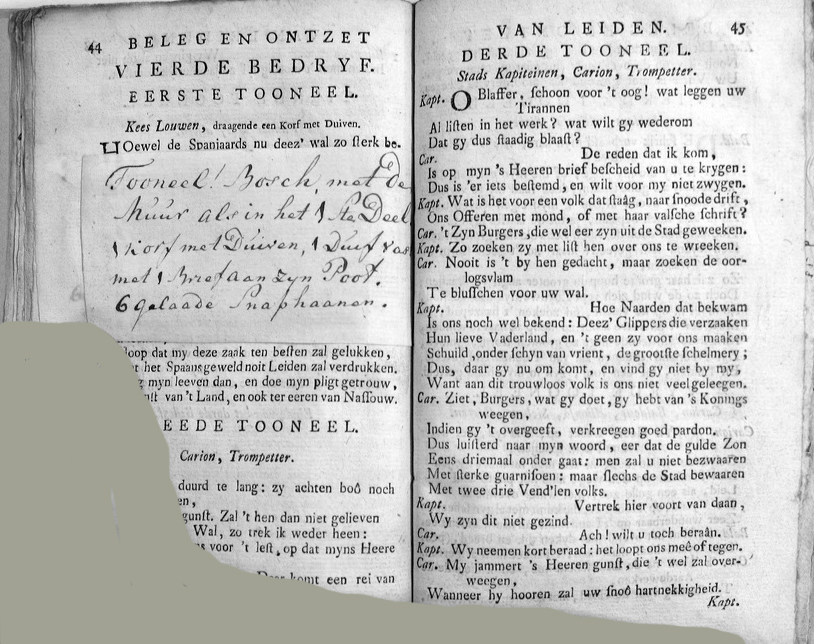 44 BELEG EN ONTZET
VIERDE BEDRYF.
EERSTE TOONEEL.
Kees Louwen, draagende een Korf met Duiven.
HOewel de Spanjaards nu deez' wal zo sterk be.
Tooneel! Bosch, met de
Muur als in het 1ste Deel
1 Korf met Duiven, 1 Duif vas
met 1 Brief aan zyn Poot.
6 gelaade Snaphaanen.
loop dat my deze zaak ten besten zal gelukken,
t het Spaansgeweld noit Leiden zal verdrukken.
myn leeven dan, en doe myn pligt getrouw,
nst van 't Land, en ook ter eeren van Nassouw.
EEDE TOONEEL.
Carion, Trompetter.
duurd te lang: zy achten boô noch
en,
gunst. Zal 't hen dan niet gelieven
Wal, zo trek ik weder heen:
s voor 't lest, op dat myns Heere
komt een rei van
VAN LEIDEN. 45
DERDE TOONEEL.
Stads Kapiteinen, Carion, Trompetter.
Kapt. O Blaffer, schoon voor 't oog! wat leggen uw
Tirannen
Al listen in het werk? wat wilt gy wederom
Dat gy dus staadig blaast?
Car. De reden dat ik kom,
Is op myn 's Heeren brief bescheid van u te krygen:
Dus is 'er iets bestemd, en wilt voor my niet zwygen.
Kapt. Wat is het voor een volk dat staâg, naar snoode drift,
Ons Offeren met mond, of met haar valsche schrift?
Car. 't Zyn Burgers, die wel eer zyn uit de Stad geweeken.
Kapt. Zo zoeken zy met list hen over ons te wreeken.
Car. Nooit is 't by hen gedacht, maar zoeken de oor-
logsvlam
Te blusschen voor uw wal.
Kapt. Hoe Naarden dat bekwam
Is ons noch wel bekend: Deez' Glippers die verzaaken
Hun lieve Vaderland, en 't geen zy voor ons maaken
Schuild, onder schyn van vrient, de grootste schelmery;
Dus, daar gy nu om komt, en vind gy niet by my,
Want aan dit trouwloos volk is ons niet veel geleegen.
Car. Ziet, Burgers, wat gy doet, gy hebt van 's Konings
weegen,
Indien gy 't overgeeft, verkreegen goed pardon.
Dus luisterd naar myn woord, eer dat de gulde Zon
Eens driemaal onder gaat: men zal u niet bezwaaren
Met sterke guarnisoen: maar slechs de Stad bewaaren
Met twee drie Vend'len volks.
Kapt. Vertrek hier voort van daan,
Wy zyn dit niet gezind.
Car. Ach! wilt u toch beraân.
Kapt. Wy neemen kort beraad: het loopt ons meê of tegen.
Car. My jammert 's Heeren gunst, die 't wel zal over-
weegen,
Wanneer hy hooren zal uw snoô hartnekkigheid.
Kapt.